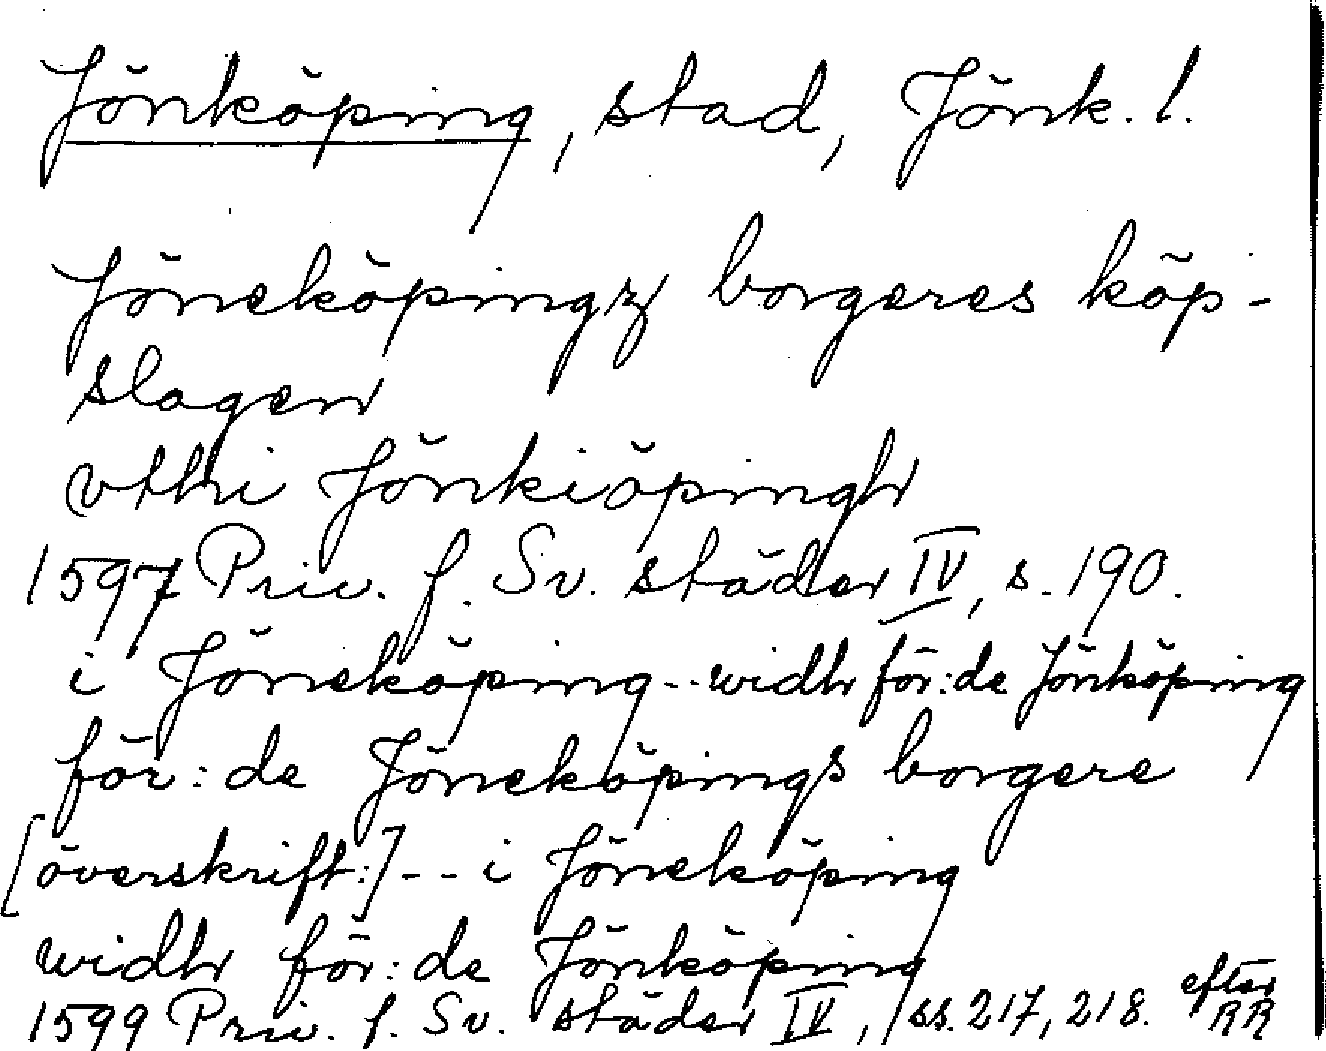 Jönköping, stad, Jönk. l.
Jöneköpingz borgeres köp-
slagen
vthi Jönkiöpingh
1597 Priv. f. Sv. städer IV, s. 190.
i Jöneköping -- widh för:de Jönköping
för:de Jöneköpings borgere
[överskrift:] -- i Jöneköping
widh för:de Jönköping
1599 Priv. f. Sv. städer IV, ss. 217, 218. efter RR